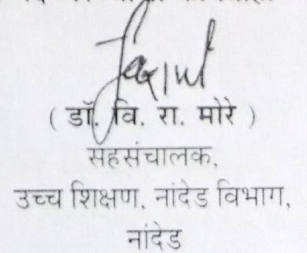 ( डॉ. वि. रा. मोरे )
सहसंचालक,
उच्च शिक्षण, नांदेड विभाग,
नांदेड